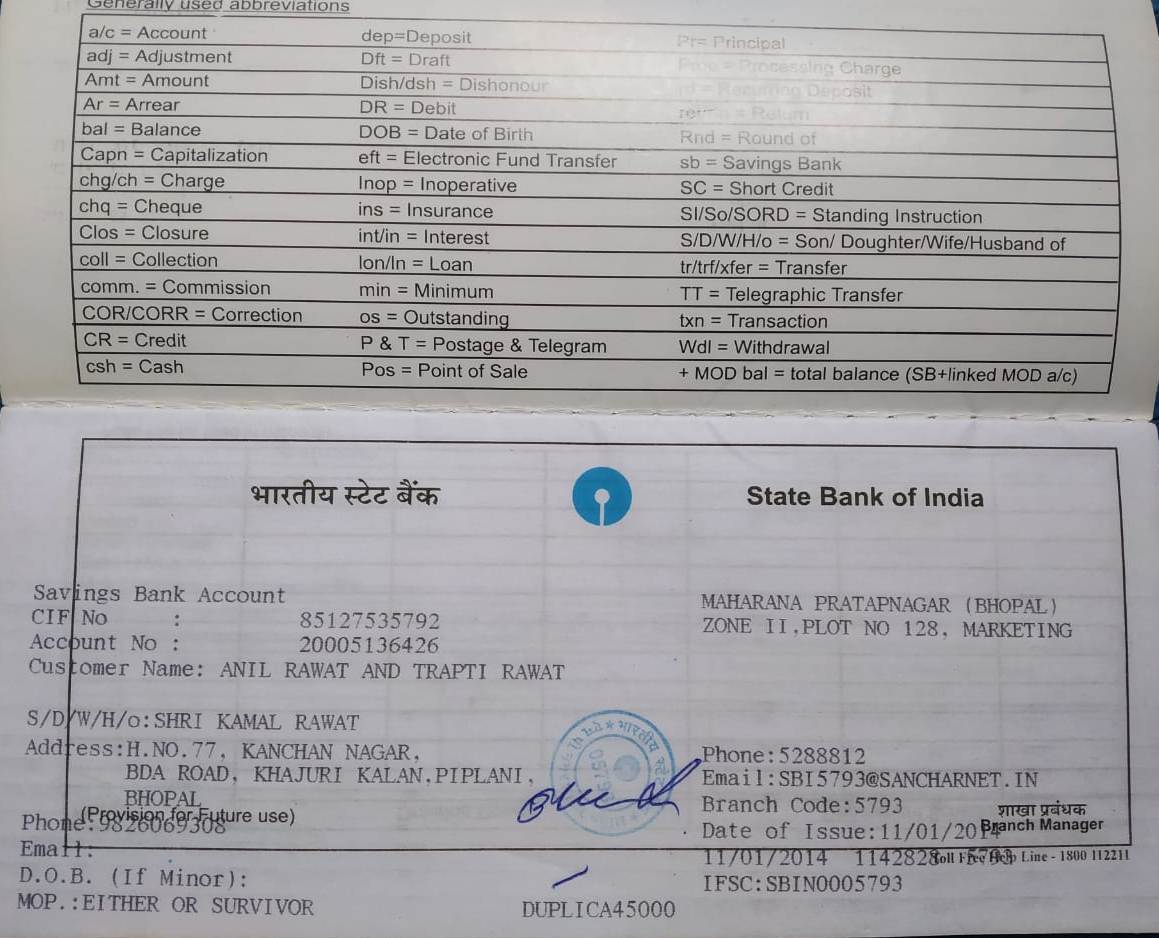 Generally used abbreviations
a/c = Account dep=Deposit Pr= Principal
adj = Adjustment Dft = Draft Proc = Processing Charge
Amt = Amount Dish/dsh = Dishonour rd = Recurring Deposit
Ar = Arrear DR = Debit = Return
bal = Balance DOB = Date of Birth Rnd = Round of
Capn = Capitalization eft = Electronic Fund Transfer sb = Savings Bank
chg/ch = Charge Inop = Inoperative SC = Short Credit
chq = Cheque ins = Insurance SI/So/SORD = Standing Instruction
Clos = Closure int/in = Interest S/D/W/H/o = Son/ Doughter/Wife/Husband of
coll = Collection lon/ln = Loan tr/trf/xfer = Transfer
comm. = Commission min = Minimum TT = Telegraphic Transfer
COR/CORR = Correction os = Outstanding txn = Transaction
CR = Credit P & T = Postage & Telegram Wdl = Withdrawal
csh = Cash Pos = Point of Sale + MOD bal = total balance (SB+linked MOD a/c)
भारतीय स्टेट बैंक State Bank of India
Savings Bank Account
MAHARANA PRATAPNAGAR (BHOPAL)
CIF No : 85127535792
ZONE II,PLOT NO 128, MARKETING
Account No : 20005136426
Customer Name: ANIL RAWAT AND TRAPTI RAWAT
S/D/W/H/o:SHRI KAMAL RAWAT
Address:H.NO.77, KANCHAN NAGAR, Phone:5288812
BDA ROAD, KHAJURI KALAN,PIPLANI, Email:SBI5793@SANCHARNET.IN
BHOPAL Branch Code:5793 शाखा प्रबंधक
(Provision for Future use)
Phone:9826069308 Date of Issue:11/01/2014 Branch Manager
Email: 11/01/2014 1142828 5793 Toll Free Help Line - 1800 112211
D.O.B. (If Minor): IFSC:SBIN0005793
MOP.:EITHER OR SURVIVOR DUPLICA45000